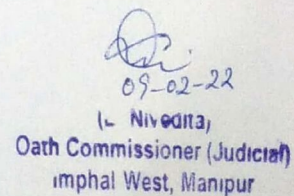 09-02-22
(L Nivedita)
Oath Commissioner (Judicial)
Imphal West, Manipur